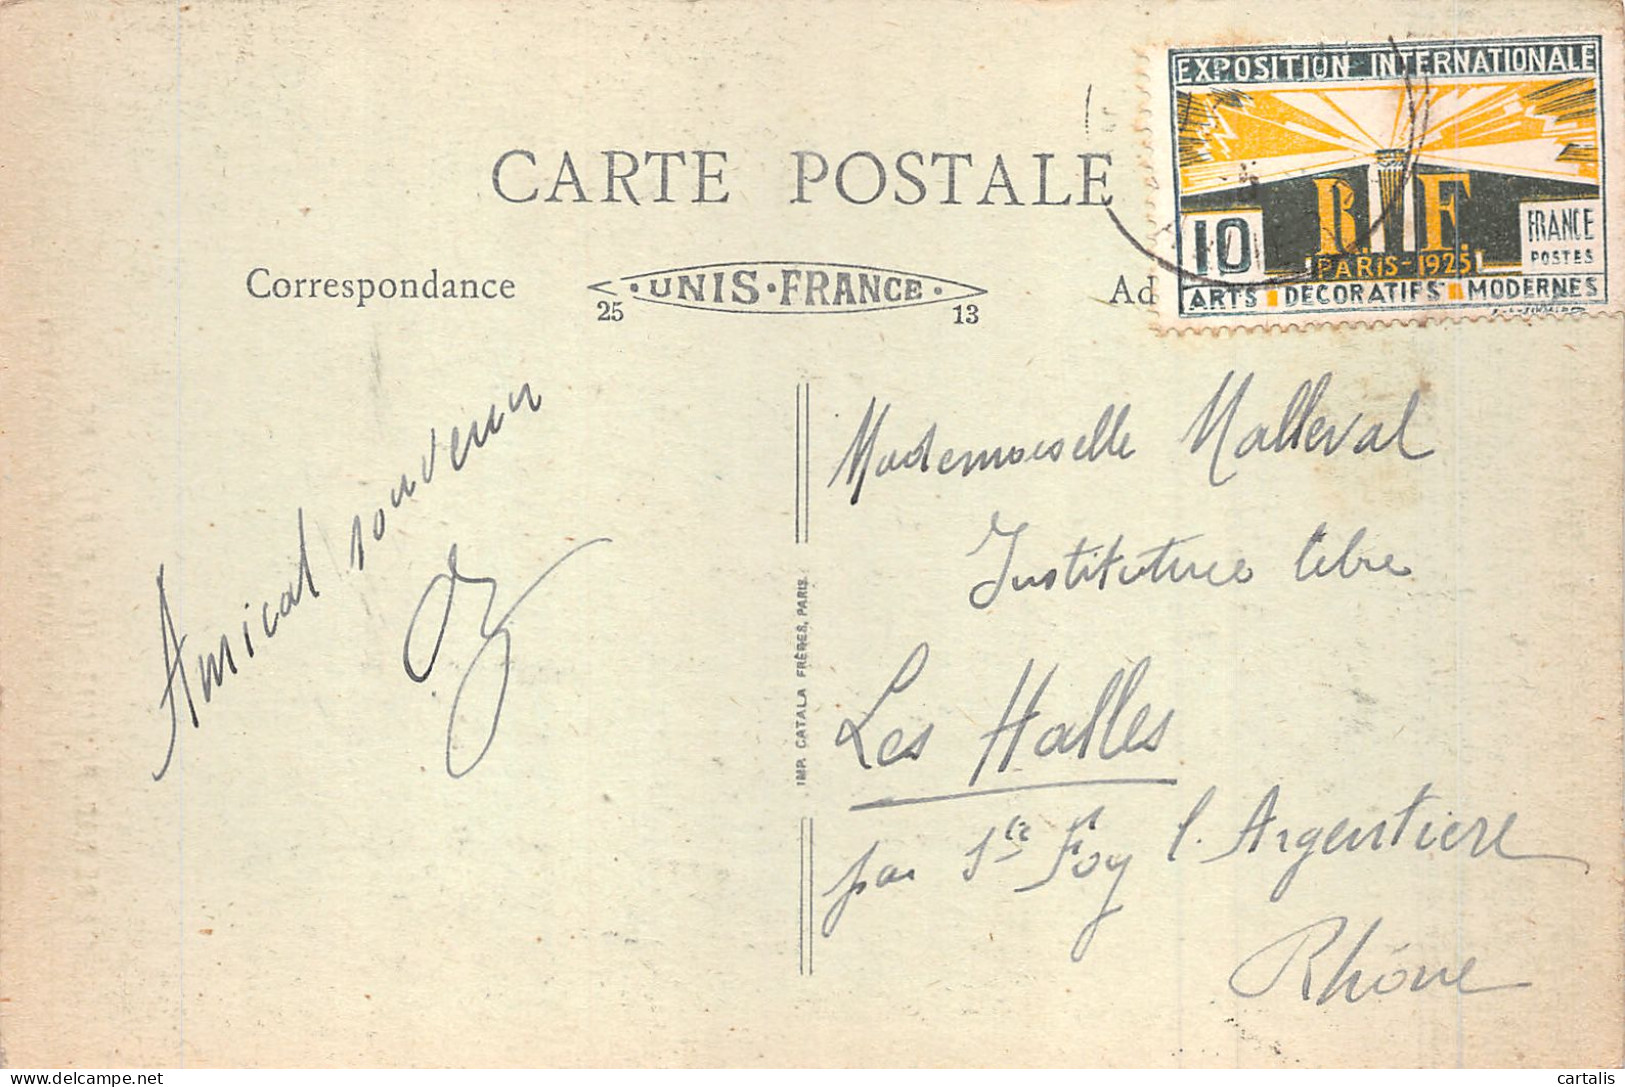 CARTE POSTALE
EXPOSITION INTERNATIONALE
10
R F
FRANCE
POSTES
PARIS-1925
ARTS DECORATIFS MODERNES
Correspondance
UNIS·FRANCE
25
13
Ad
Amical souvenir
IMP. CATALA FRÈRES, PARIS.
Mademoiselle Malleval
Institutrice libre
Les Halles
par Ste Foy l'Argentiere
Rhône
delcampe.net
cartalis